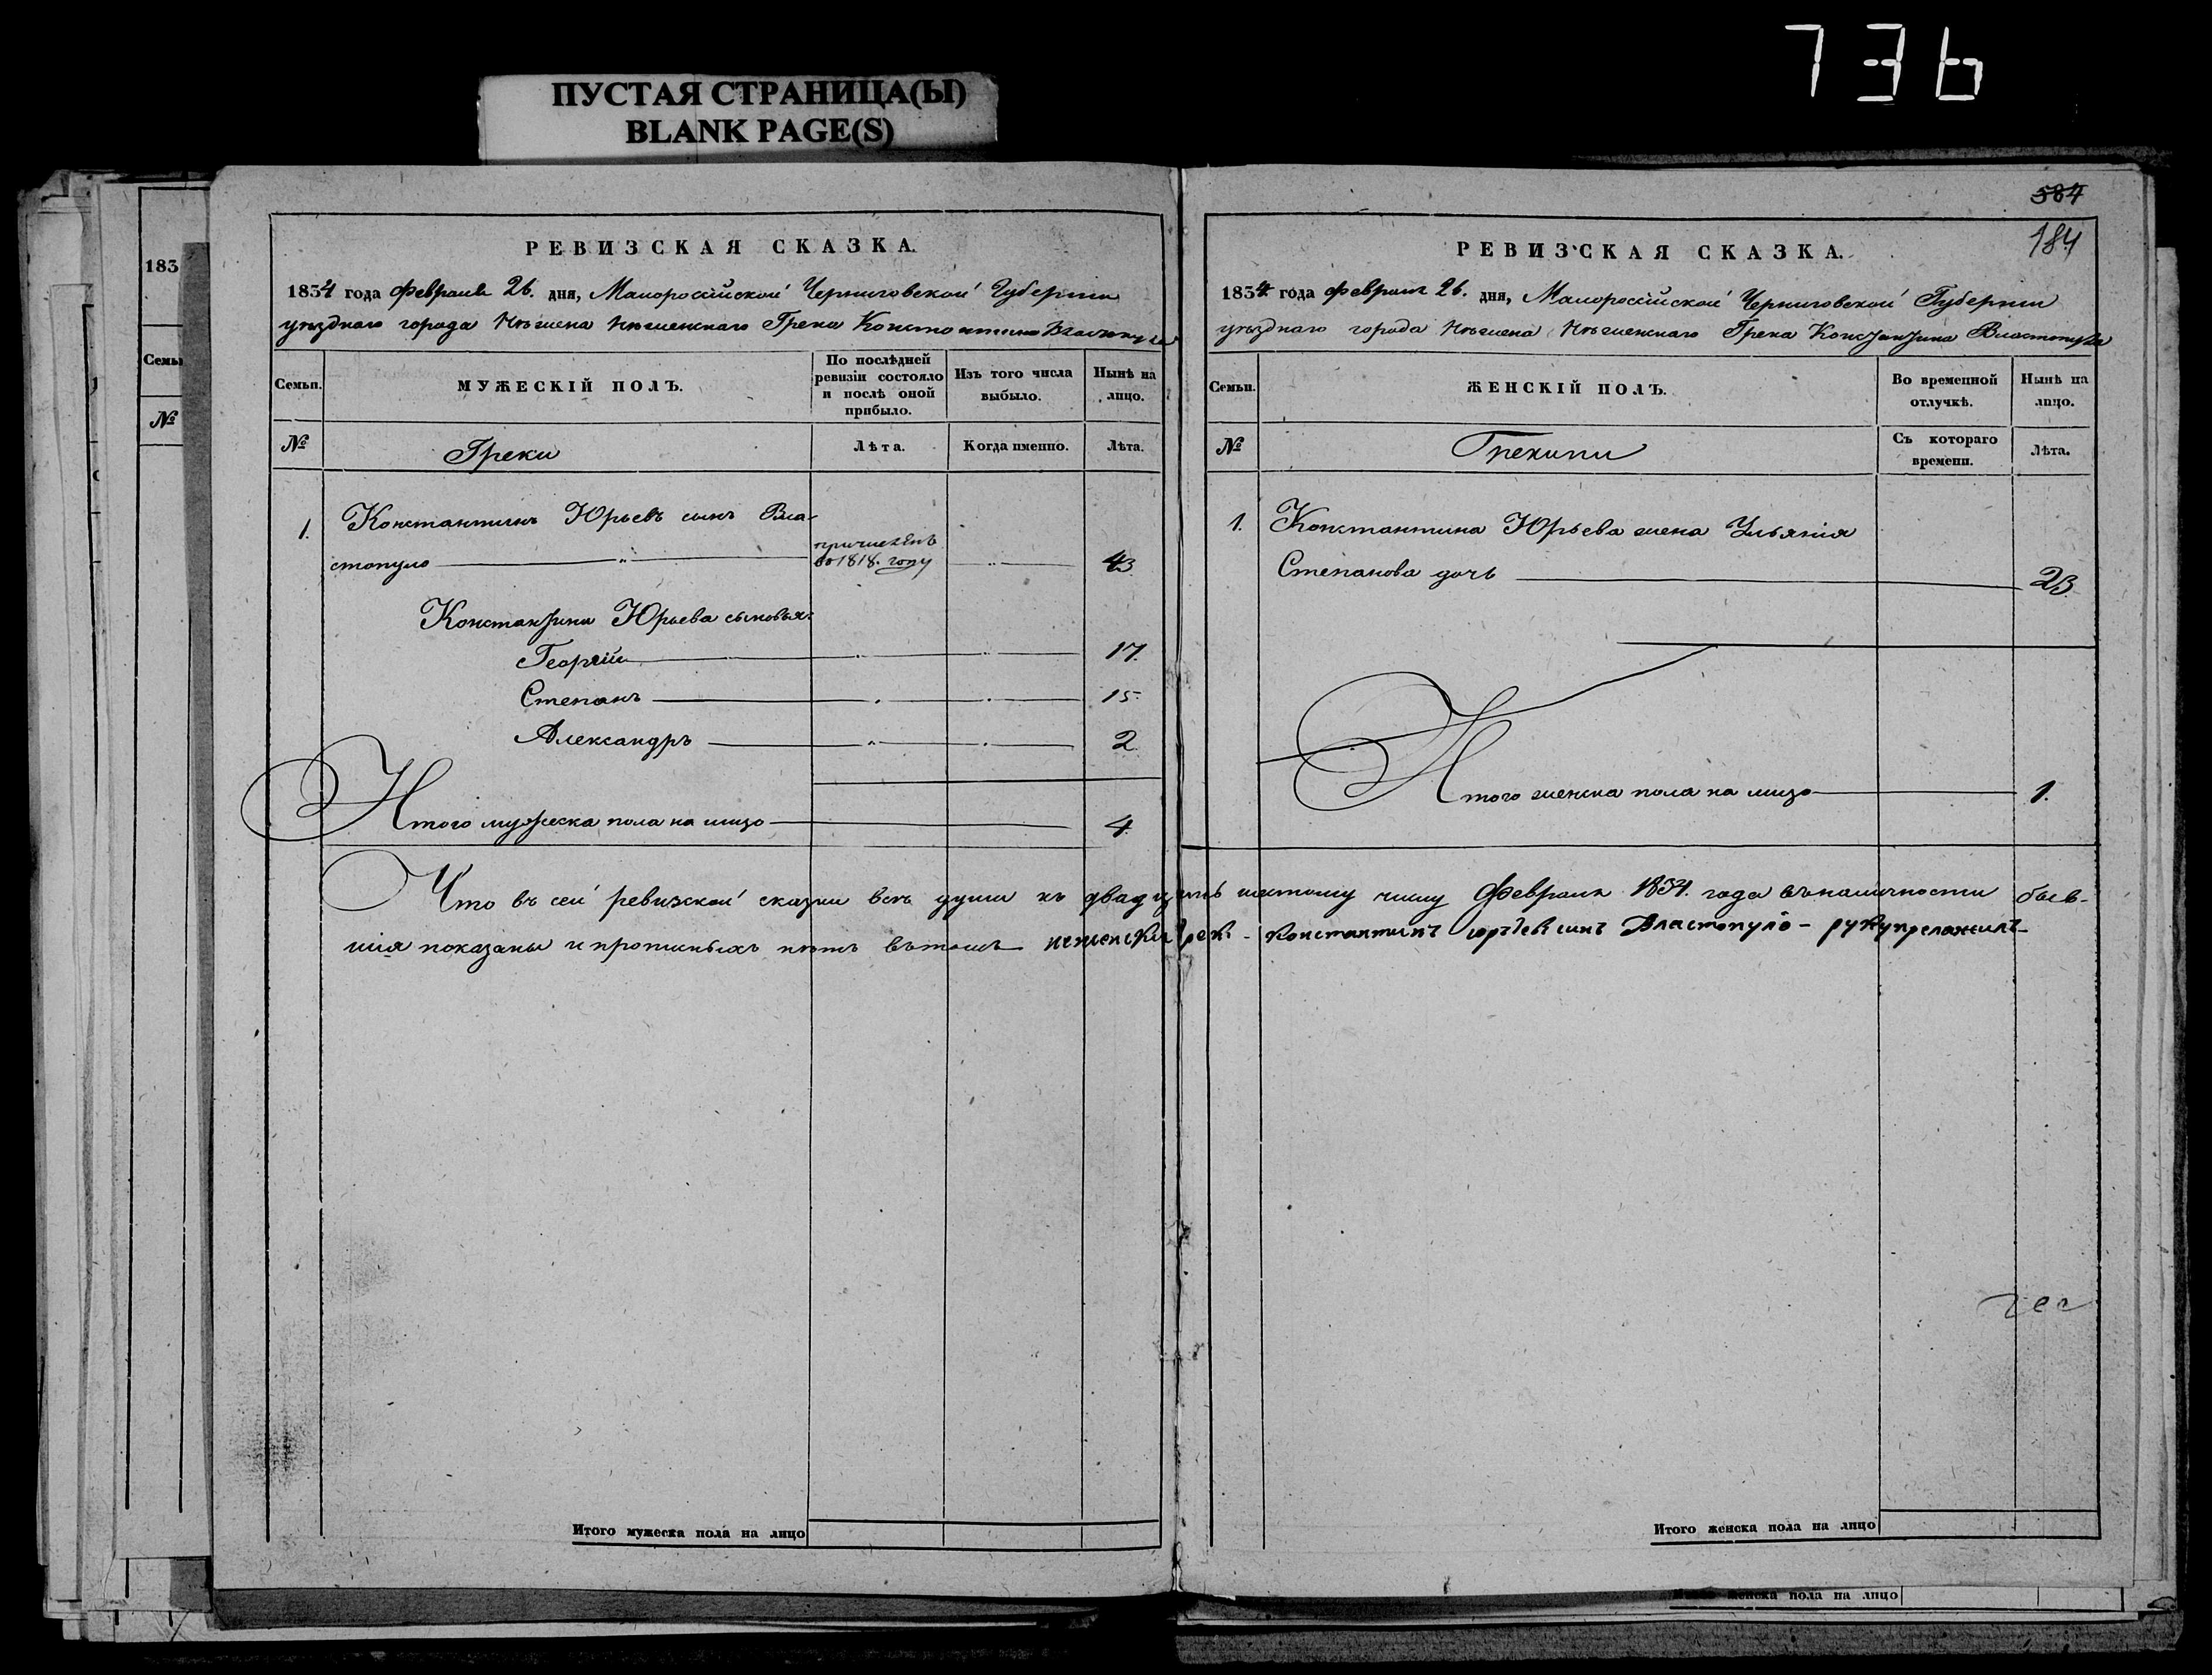 736
ПУСТАЯ СТРАНИЦА(Ы)
BLANK PAGE(S)
183
Семьи
№
РЕВИЗСКАЯ СКАЗКА.
1834 года Февраля 26. дня, Малороссійской Черниговской Губерніи
уѣзднаго города Нѣжена Нѣженскаго Грека Константина Властопула
Семьи.
МУЖЕСКІЙ ПОЛЪ.
По послѣдней ревизіи состояло и послѣ оной прибыло.
Изъ того числа выбыло.
Нынѣ на лицо.
№
Греки
Лѣта.
Когда именно.
Лѣта.
1. Константинъ Юрьевъ сынъ Вла-
стопуло причисленъ во 1818. году 43
Константина Юрьева сыновья:
Георгій 17.
Степанъ 15.
Александръ 2.
Итого мужеска пола на лицо 4.
Итого мужеска пола на лицо
584
184
РЕВИЗСКАЯ СКАЗКА.
1834 года Февраля 26. дня, Малороссійской Черниговской Губерніи
уѣзднаго города Нѣжена Нѣженскаго Грека Константина Властопула
Семьи.
ЖЕНСКІЙ ПОЛЪ.
Во временной отлучкѣ.
Нынѣ на лицо.
№
Грекини
Съ котораго времени.
Лѣта.
1. Константина Юрьева жена Ульянія
Степанова дочь 23.
Итого женска пола на лицо 1.
Что въ сей ревизской сказки всѣ души къ двадцать шестому числу Февраля 1834. года въ наличности быв-
шія показаны и прописныхъ нѣтъ вътомъ неженски грек - Константинъ юрьевъ синъ Властопуло - руку преложилъ
Итого женска пола на лицо
женска пола на лицо